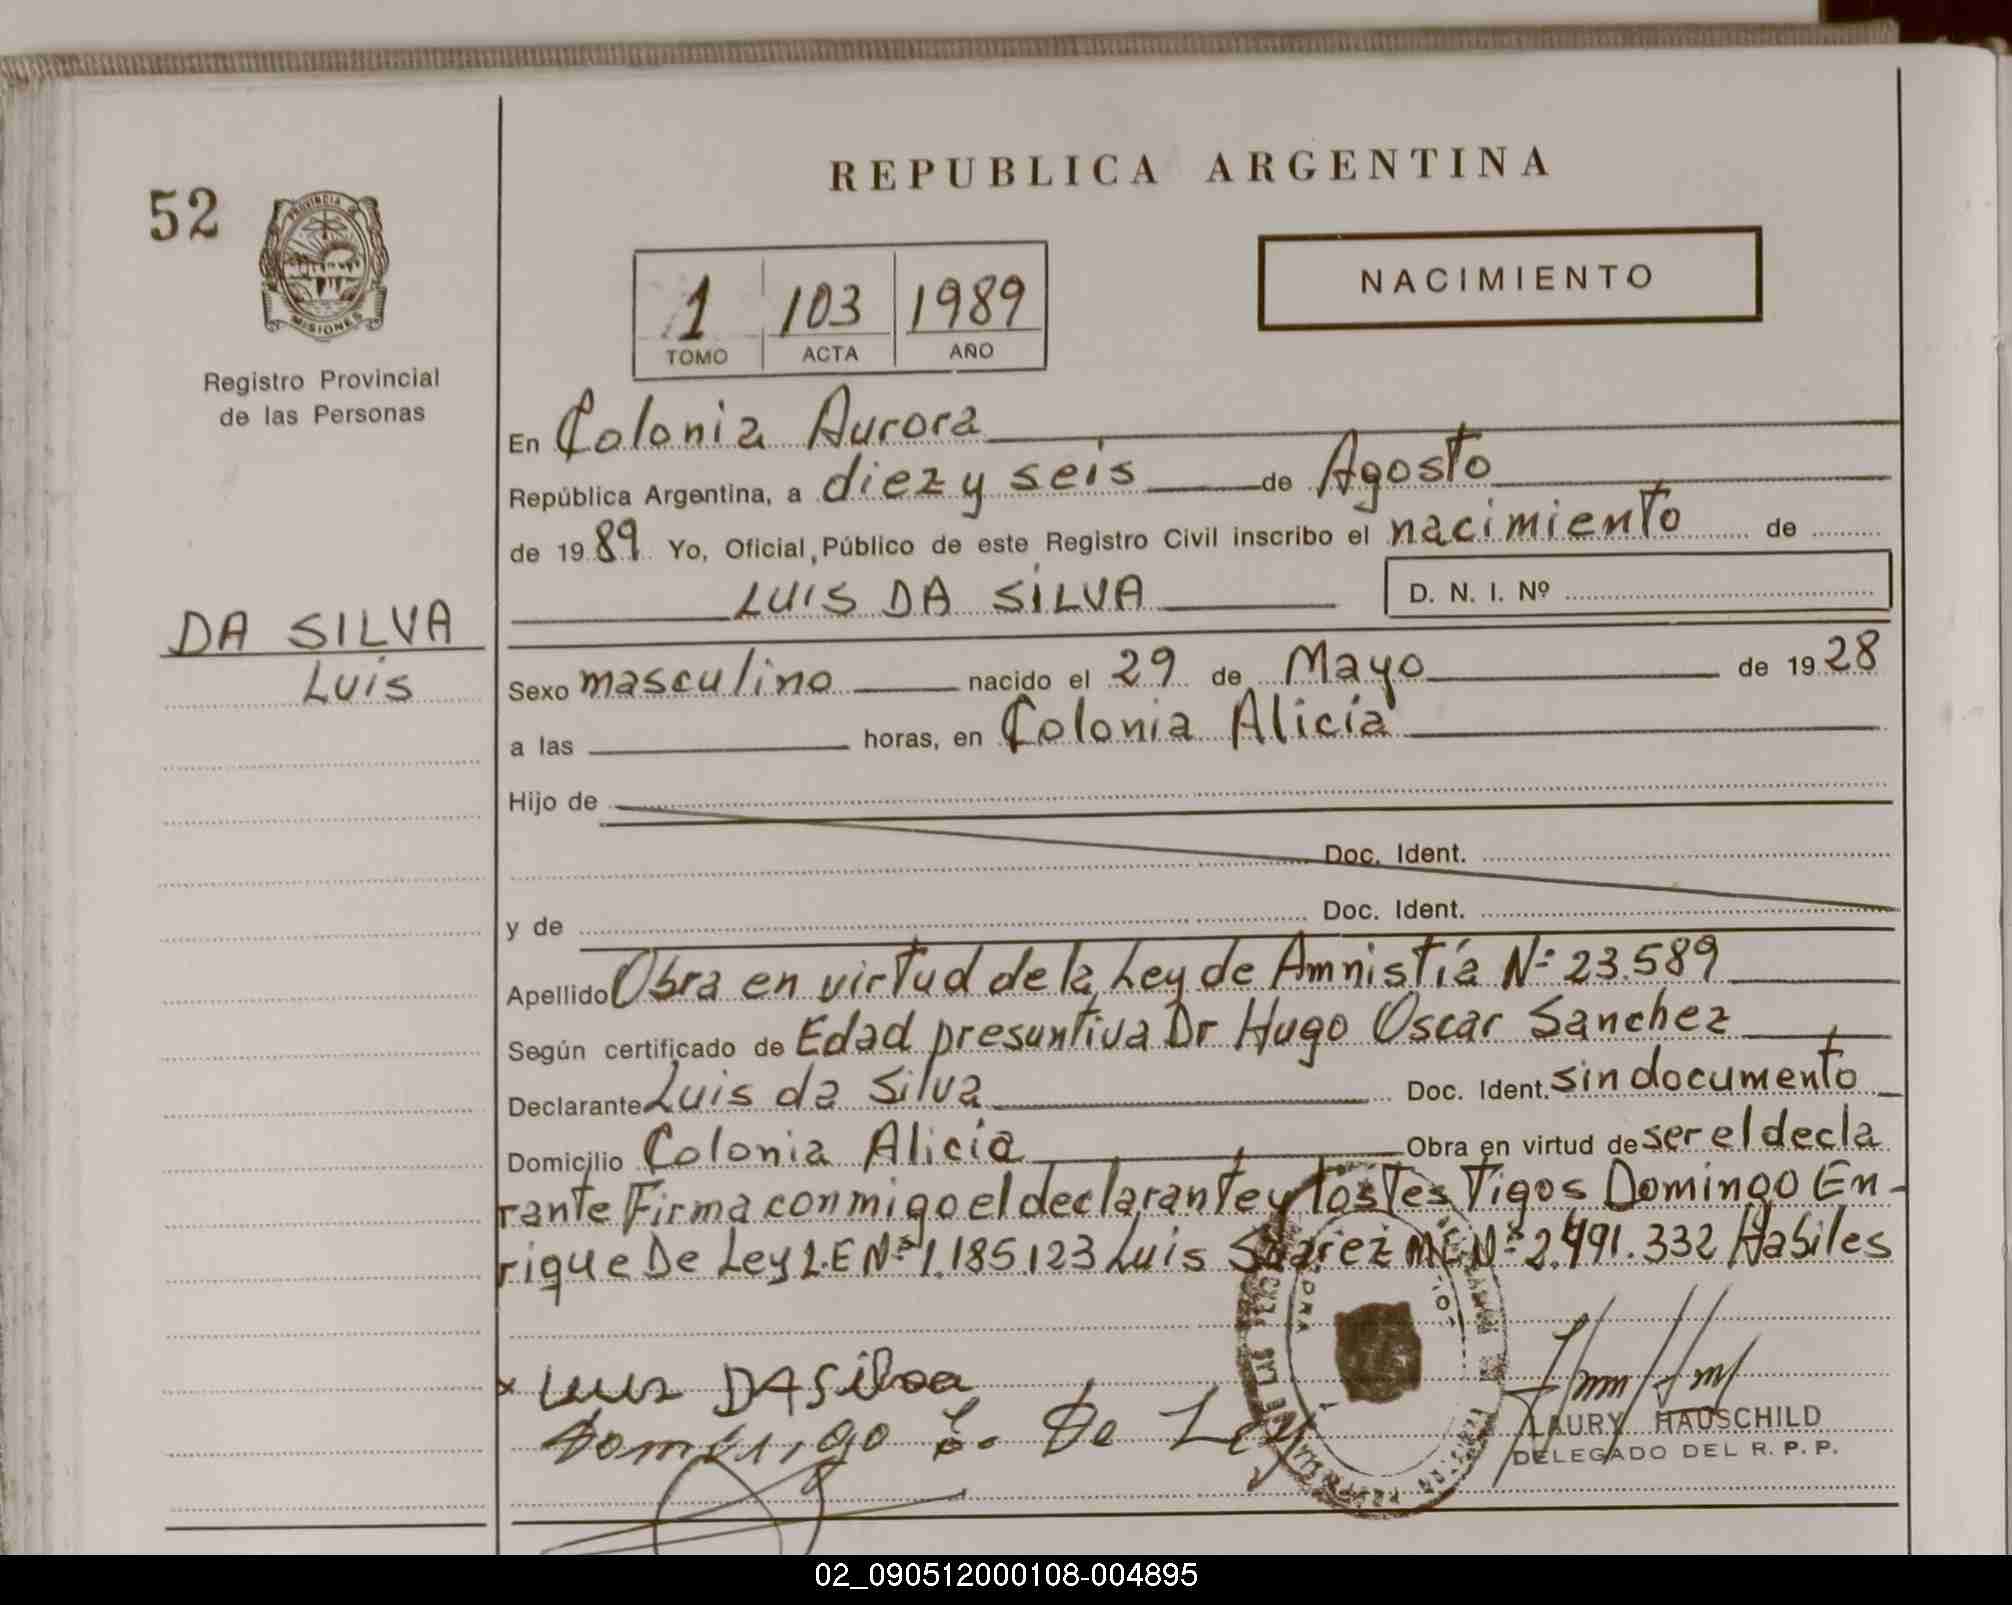 REPUBLICA ARGENTINA
52
PROVINCIA DE
MISIONES
Registro Provincial
de las Personas
NACIMIENTO
1 103 1989
TOMO ACTA AÑO
En Colonia Aurora
República Argentina, a diez y seis de Agosto
de 1989 Yo, Oficial Público de este Registro Civil inscribo el nacimiento de
LUIS DA SILVA D. N. I. Nº
DA SILVA
Luis
Sexo masculino nacido el 29 de Mayo de 1928
a las horas, en Colonia Alicia
Hijo de
Doc. Ident.
y de Doc. Ident.
Apellido Obra en virtud de la Ley de Amnistía Nº 23.589
Según certificado de Edad presuntiva Dr Hugo Oscar Sanchez
Declarante Luis da Silva Doc. Ident. sin documento
Domicilio Colonia Alicia Obra en virtud de ser el decla
rante Firma conmigo el declarante y los Testigos Domingo En-
rique De Ley L.E Nº 1.185.123 Luis Suarez M.E Nº 2.491.332 Habiles
x Luis DA Silva
Domingo E. De Ley
LAURY HAUSCHILD
DELEGADO DEL R. P. P.
02_090512000108-004895